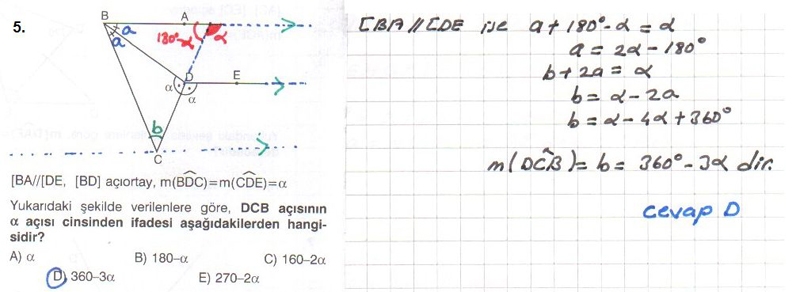 5.
B
A
a
a
180°-α
α
D
E
α
α
b
C
[BA//[DE, [BD] açıortay, m(BDC)=m(CDE)=α
Yukarıdaki şekilde verilenlere göre, DCB açısının
α açısı cinsinden ifadesi aşağıdakilerden hangi-
sidir?
A) α B) 180–α C) 160–2α
D) 360–3α E) 270–2α
[BA//[DE ise a+180°-α = α
a = 2α-180°
b+2a = α
b = α-2a
b = α-4α+360°
m(DCB) = b = 360°-3α dır.
cevap D